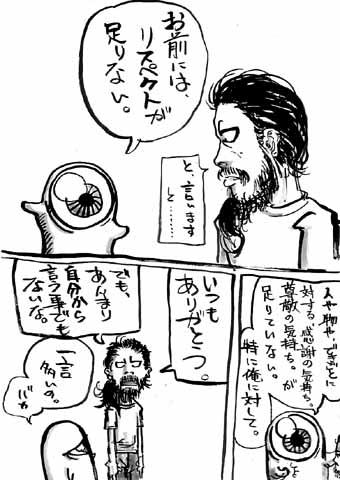 お前には、
リスペクトが
足りない。
と、言います
と……
人や物や、できごとに
対する、感謝の気持ち。
尊敬の気持ち。が
足りていない。
特に俺に対して。
いつも
ありがとっ。
でも、
あんまり
自分から
言う事でも
ないな。
一言
多いの。
バカ